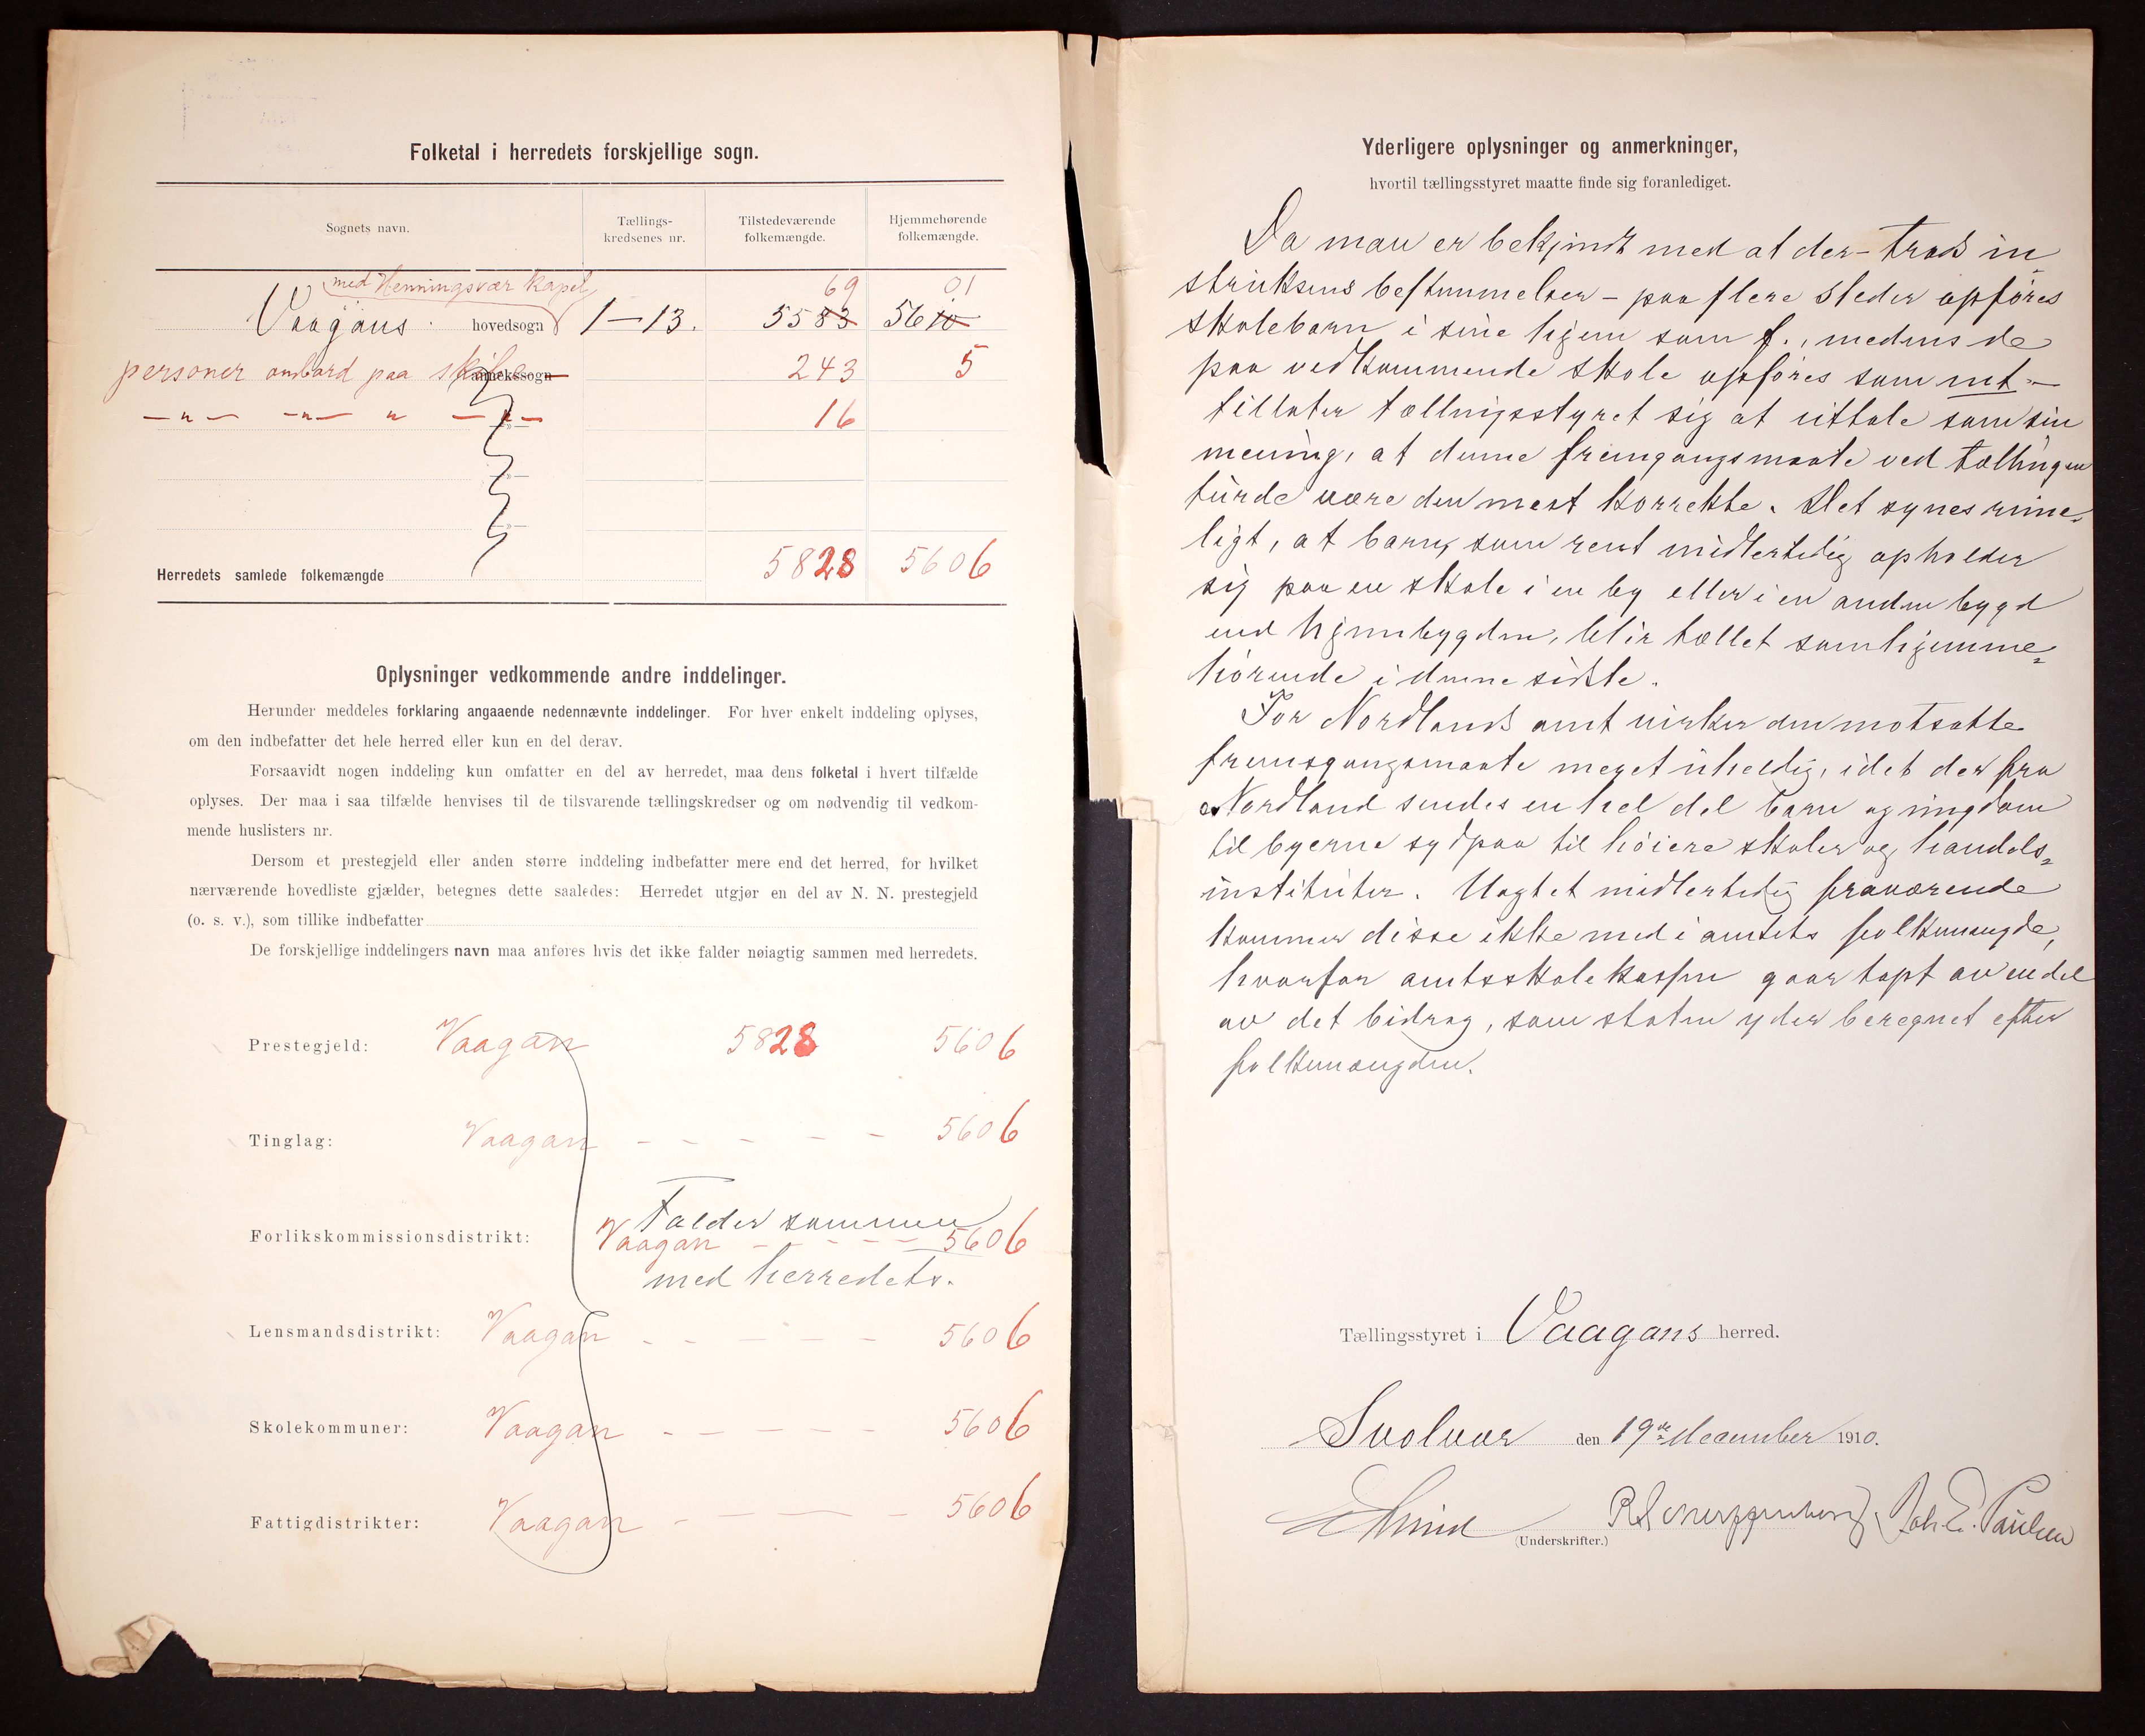 Folketal i herredets forskjellige sogn.
Sognets navn.
Tællings-
kredsenes nr.
Tilstedeværende
folkemængde.
Hjemmehørende
folkemængde.
med Henningsvær Kapel
69 01
Vaagans hovedsogn 1–13. 5583 5610
personer ombord paa skibe annekssogn 243 5
—„— —„— „ —„— 16
Herredets samlede folkemængde 5828 5606
Oplysninger vedkommende andre inddelinger.
Herunder meddeles forklaring angaaende nedennævnte inddelinger. For hver enkelt inddeling oplyses,
om den indbefatter det hele herred eller kun en del derav.
Forsaavidt nogen inddeling kun omfatter en del av herredet, maa dens folketal i hvert tilfælde
oplyses. Der maa i saa tilfælde henvises til de tilsvarende tællingskredser og om nødvendig til vedkom-
mende huslisters nr.
Dersom et prestegjeld eller anden større inddeling indbefatter mere end det herred, for hvilket
nærværende hovedliste gjælder, betegnes dette saaledes: Herredet utgjør en del av N. N. prestegjeld
(o. s. v.), som tillike indbefatter
De forskjellige inddelingers navn maa anføres hvis det ikke falder nøiagtig sammen med herredets.
Prestegjeld: Vaagan 5828 5606
Tinglag: Vaagan - - - - - 5606
Falder sammen
Forlikskommissionsdistrikt: Vaagan - - - - 5606
med herredets.
Lensmandsdistrikt: Vaagan - - - - - 5606
Skolekommuner: Vaagan - - - - - 5606
Fattigdistrikter: Vaagan - - - - 5606
Yderligere oplysninger og anmerkninger,
hvortil tællingsstyret maatte finde sig foranlediget.
Da man er bekjendt med at der – trods in
struksens bestemmelser – paa flere steder opføres
skolebarn i sine hjem som f., medens de
paa vedkommende skole opføres som mt –
tillater tællingsstyret sig at uttale som sin
mening, at denne fremgangsmaate ved tællingen
turde være den mest korrekte. Det synes rime-
ligt, at barn, som rent midlertidig opholder
sig paa en skole i en by eller i en anden bygd
end hjembygden, blir tællet som hjemme=
hørende i denne sidste.
For Nordlands amt virker den motsatte
fremgangsmaate meget uheldig, idet der fra
Nordland sendes en hel del barn og ungdom
til byerne sydpaa til høiere skoler og handels=
institutter. Uagtet midlertidig fraværende
kommer disse ikke med i amtets folkemængde,
hvorfor amtsskolekassen gaar tapt av en del
av det bidrag, som staten yder beregnet efter
folkemængden.
Tællingsstyret i Vaagans herred.
Svolvær den 19de december 1910.
Joh. E. Paulsen
(Underskrifter.)